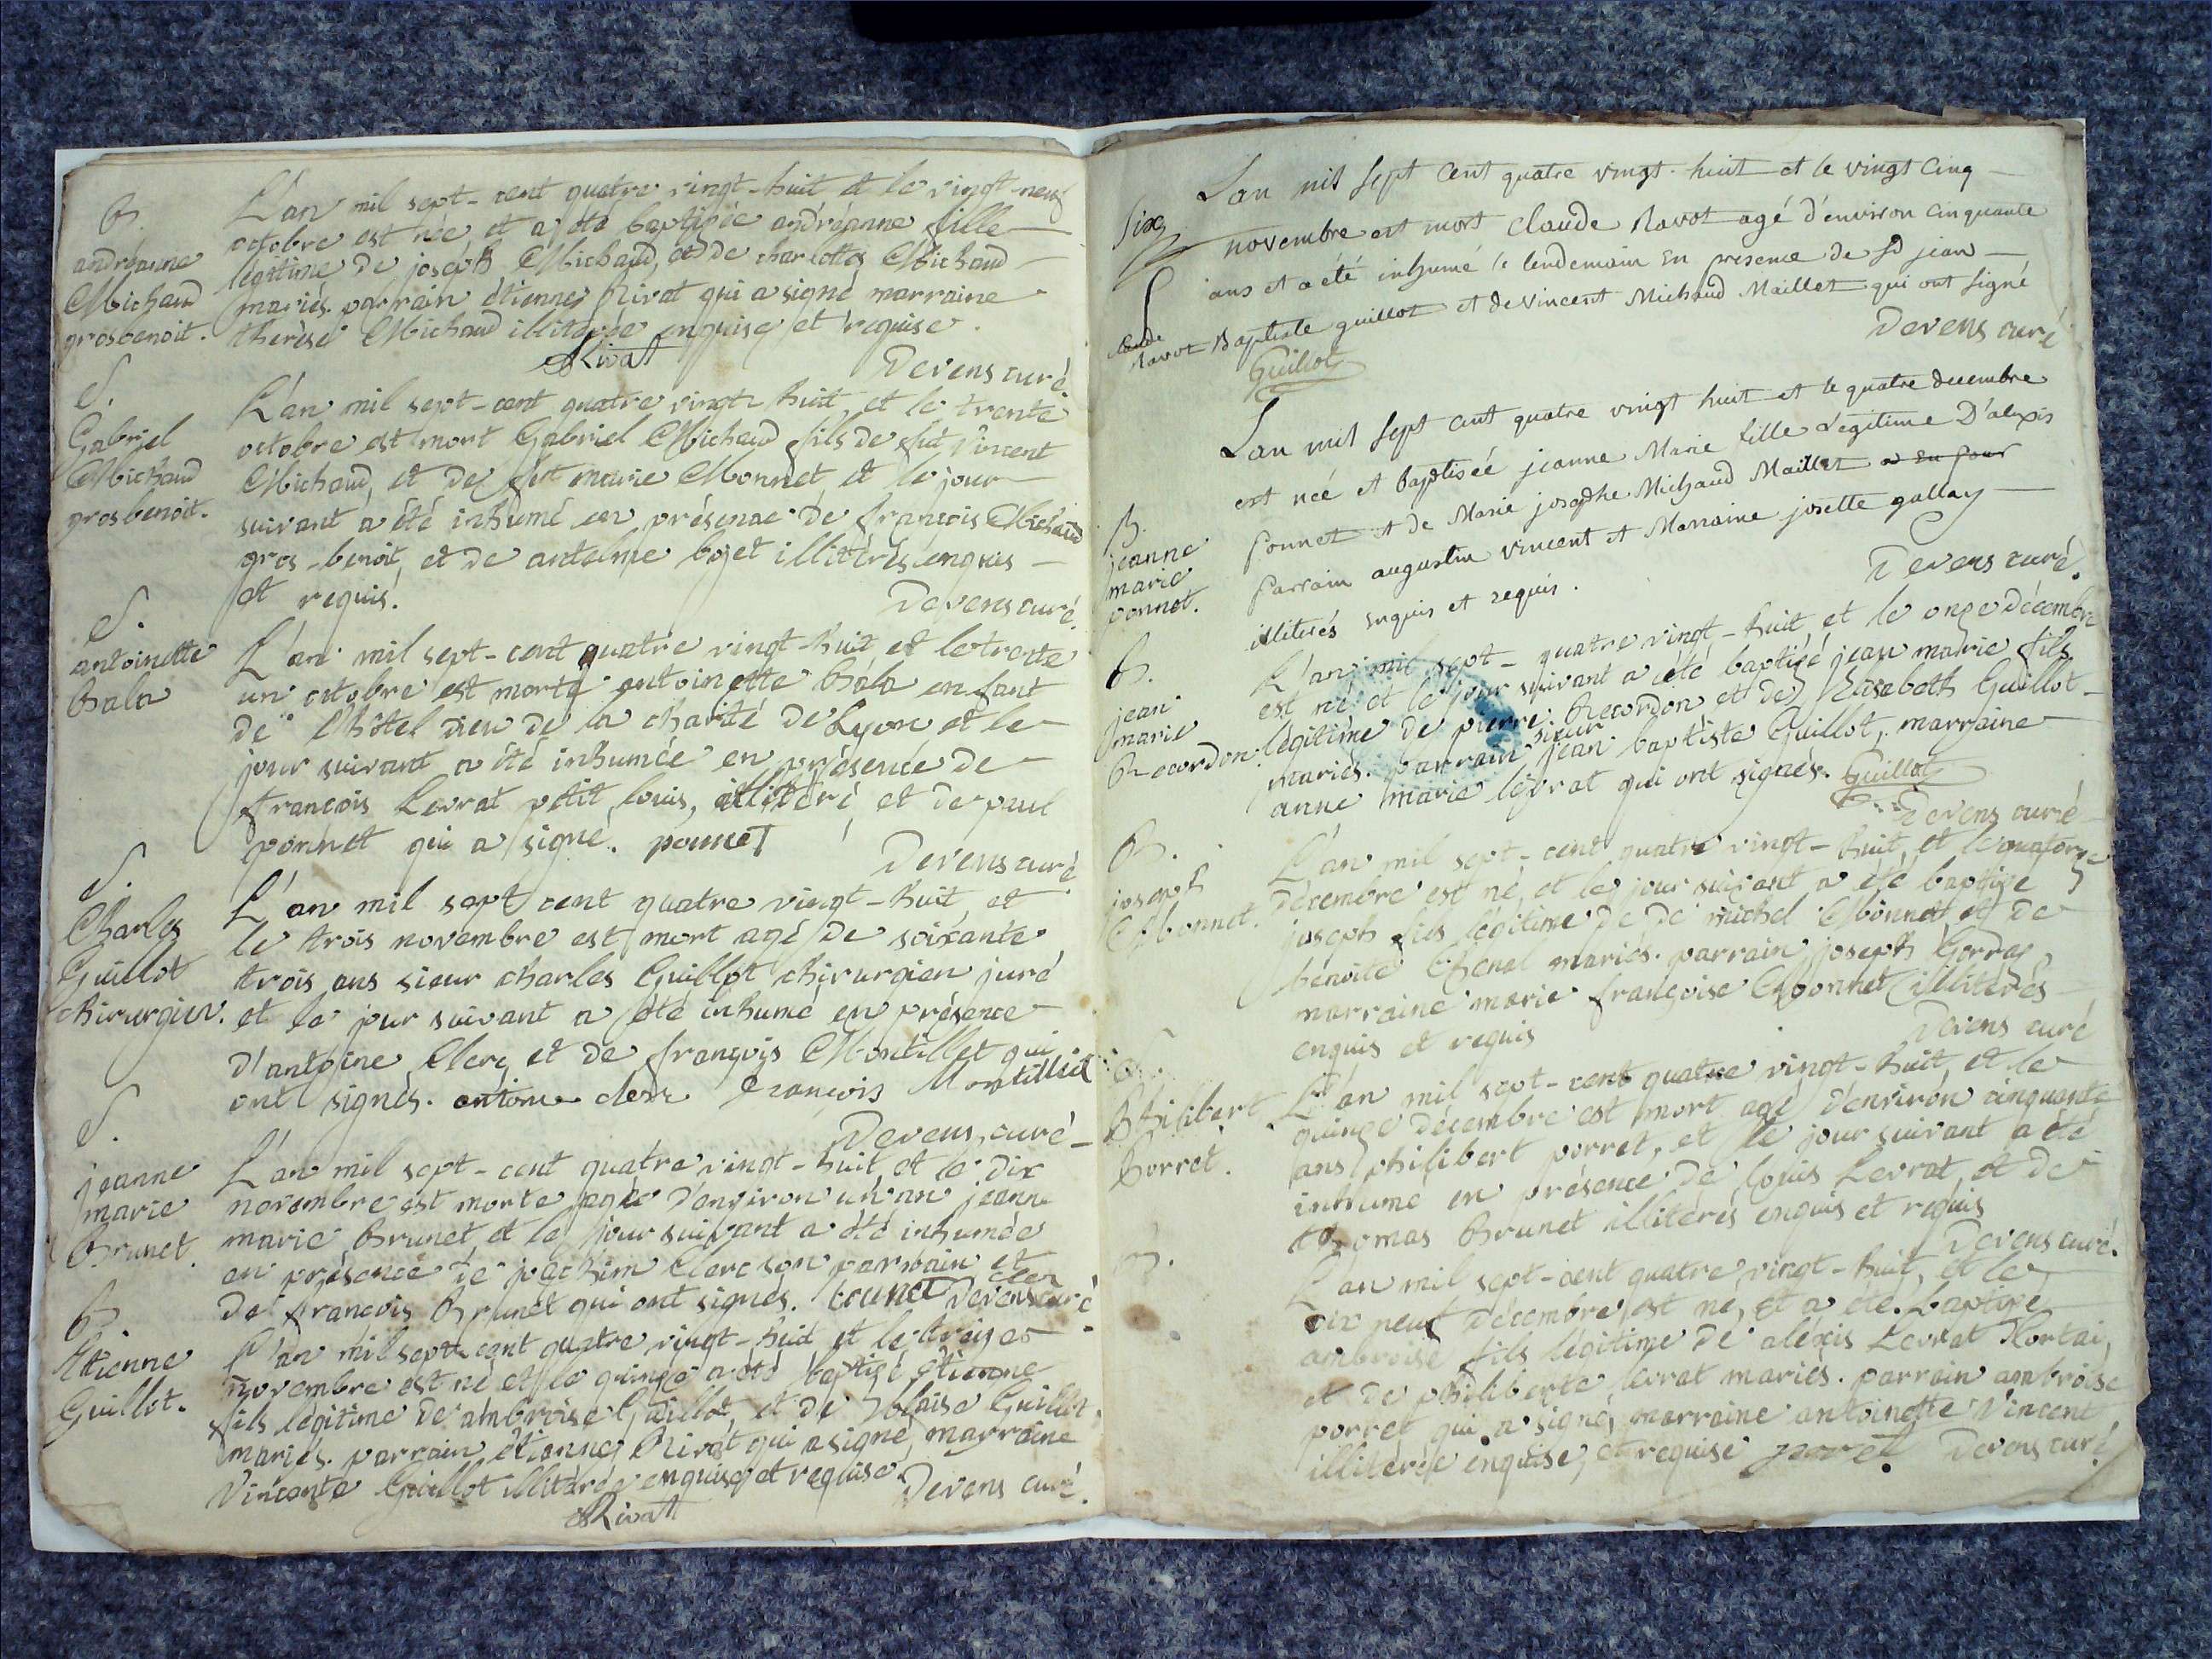 B.
andréanne
Michaud
grosbenoit.
L'an mil sept-cent quatre vingt-huit et le vingt-neuf
octobre est née et a été baptisée andréanne fille
légitime de joseph Michaud, et de charlotte Michaud
mariés. parrain étienne Rivat qui a signé marraine
therèse Michaud illiterée enquise et requise.
Rivat
Devens curé
S.
Gabriel
Michaud
gros benoit.
L'an mil sept-cent quatre vingt-huit, et le trente
octobre est mort Gabriel Michaud fils de fut Vincent
Michaud, et de fut marie Monnet et le jour
suivant a été inhumé en présence de françois Michaud
gros-benoit, et de antelme bojet illitérés enquis
et requis.
Devens curé
S.
antoinette
Bala
L'an mil sept-cent quatre vingt-huit et le trente
un octobre est morte antoinette Bala enfant
de l'hôtel dieu de la charité de Lyon et le
jour suivant a été inhumée en présence de
françois Levrat petit louis, illitéré, et de paul
ponnet qui a signé. ponnet
Devens curé
S.
Charles
Guillot
chirurgien.
L'an mil sept cent quatre vingt-huit, et
le trois novembre est mort agé de soixante
trois ans sieur charles Guillot chirurgien juré
et le jour suivant a été inhumé en présence
d'antoine Clerc et de françois Montillet qui
ont signés. antoine clerc françois Montilliet
Devens, curé
S.
jeanne
marie
Brunet.
L'an mil sept-cent quatre vingt-huit et le dix
novembre est morte agée d'environ un an jeanne
marie Brunet et le jour suivant a été inhumée
en présence de joachim Clerc son parrain et
de françois Brunet qui ont signés. brunet clerc Devens curé
B.
Etienne
Guillot.
L'an mil sept cent quatre vingt-huit et le treize
novembre est né et le quinze a été baptisé étienne
fils légitime de ambroise Guillot, et de blaise Guillot
mariés. parrain étienne Rivat qui a signé, marraine
Vincente Guillot illitérée enquise et requise.
Rivat
Devens curé.
L'an mil sept cent quatre vingt-huit et le vingt cinq
six
novembre est mort claude Ravot agé d'environ cinquante
S
ans et a été inhumé le lendemain en presence de Sr jean
claude
Ravot
Baptiste guillot et de vincent Michaud Maillet qui ont signé
Devens curé
Guillot
L'an mil sept cent quatre vingt huit et le quatre decembre
B.
jeanne
marie
ponnet.
est neé et baptiseé jeanne Marie fille Légitime D'alexis
ponnet et de Marie josephe Michaud Maillet
parrain augustin vincent et Marraine josette gallay
illiterés enquis et requis.
Devens curé.
B.
jean
marie
Recordon.
L'an mil sept-quatre vingt-huit et le onze décembre
est né et le jour suivant a été baptisé jean marie fils
légitime de pierre Recordon et de Elisabeth Guillot
mariés. parrain sieur jean baptiste Guillot, marraine
anne marie levrat qui ont signés. Guillot
Devens curé
B.
joseph
Monnet.
L'an mil sept-cent quatre vingt-huit, et le quatorze
décembre est né, et le jour suivant a été baptisé
joseph fils légitime de de michel Monnet, et de
benoite Chenel mariés. parrain joseph
marraine marie françoise Monnet illitérés
enquis et requis
Devens curé
S.
Philibert
Porret.
L'an mil sept-cent quatre vingt-huit, et le
quinze décembre est mort agé d'environ cinquante
ans philibert porret, et le jour suivant a été
inhumé en présence de louis Levrat, et de
thomas Brunet illitérés enquis et requis
Devens curé.
B.
L'an mil sept-cent quatre vingt-huit, et le
dix neuf décembre, est né, et a été baptisé
ambroise fils légitime de aléxis Levrat
et de philiberte levrat mariés. parrain ambroise
porret qui a signé, marraine antoinette Vincent
illitérée enquise, et requise poret. Devens curé